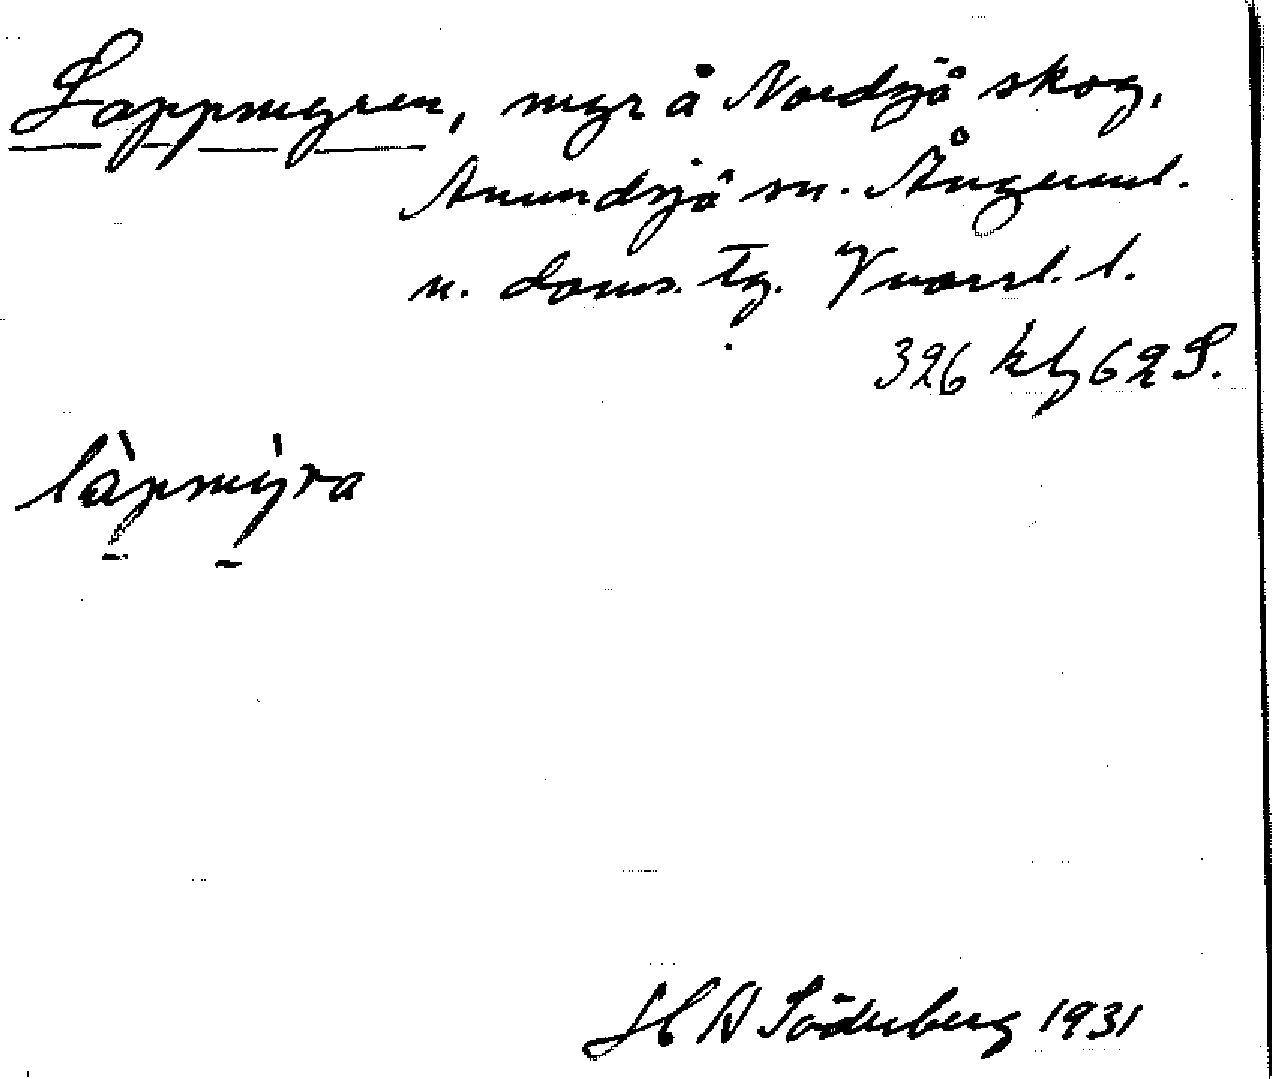 Lappmyren, myr å Nordsjö skog,
Anundsjö sn. Ångerml.
n. doms. Tg. Västrl. l.
326 kbg 62 S.
la̖pmy̖ra
H A Söderberg 1931